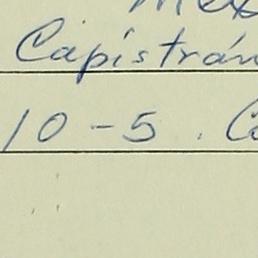 Capistrán
10-5. C